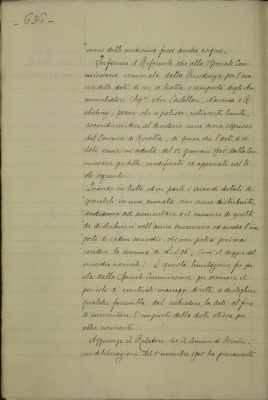 - 636 -
numero delle medesime fosse anche esiguo.
Informa il Riferente che alla Speciale Com-
missione nominata dalla Presidenza per l'esa-
me delle doti di cui si tratta, e composta degli Am-
ministratori Sigri Avv. Castellani,
parve che si potesse, entro certi limiti,
accondiscendere al desiderio
del Comune di Rivolta, di guisa che l'art.
in seduta del 12 gennaio 1905, dalla Com-
missione predetta modificato ed approvato nel te-
sto seguente:
Quando in tutto od in parte i premi dotali di-
sponibili in una annata non siano distribuiti,
andranno ad aumentare o il numero di quelli
da distribuirsi nell'anno successivo od anche l'im-
porto di cadun sussidio, che non potrà però mai
eccedere la somma di L. (cioè il doppio del
sussidio normale). E questa limitazione fu po-
sta dalla Speciale Commissione per rimuovere il
pericolo di eventuali maneggi diretti a distogliere
qualche fanciulla dal richiedere la dote al fine
di aumentare l'importo della dote stessa per
altre concorrenti.
Aggiunge il Relatore che il Comune di Rivolta,
in deliberazione del 5 novembre 1905 ha pienamente